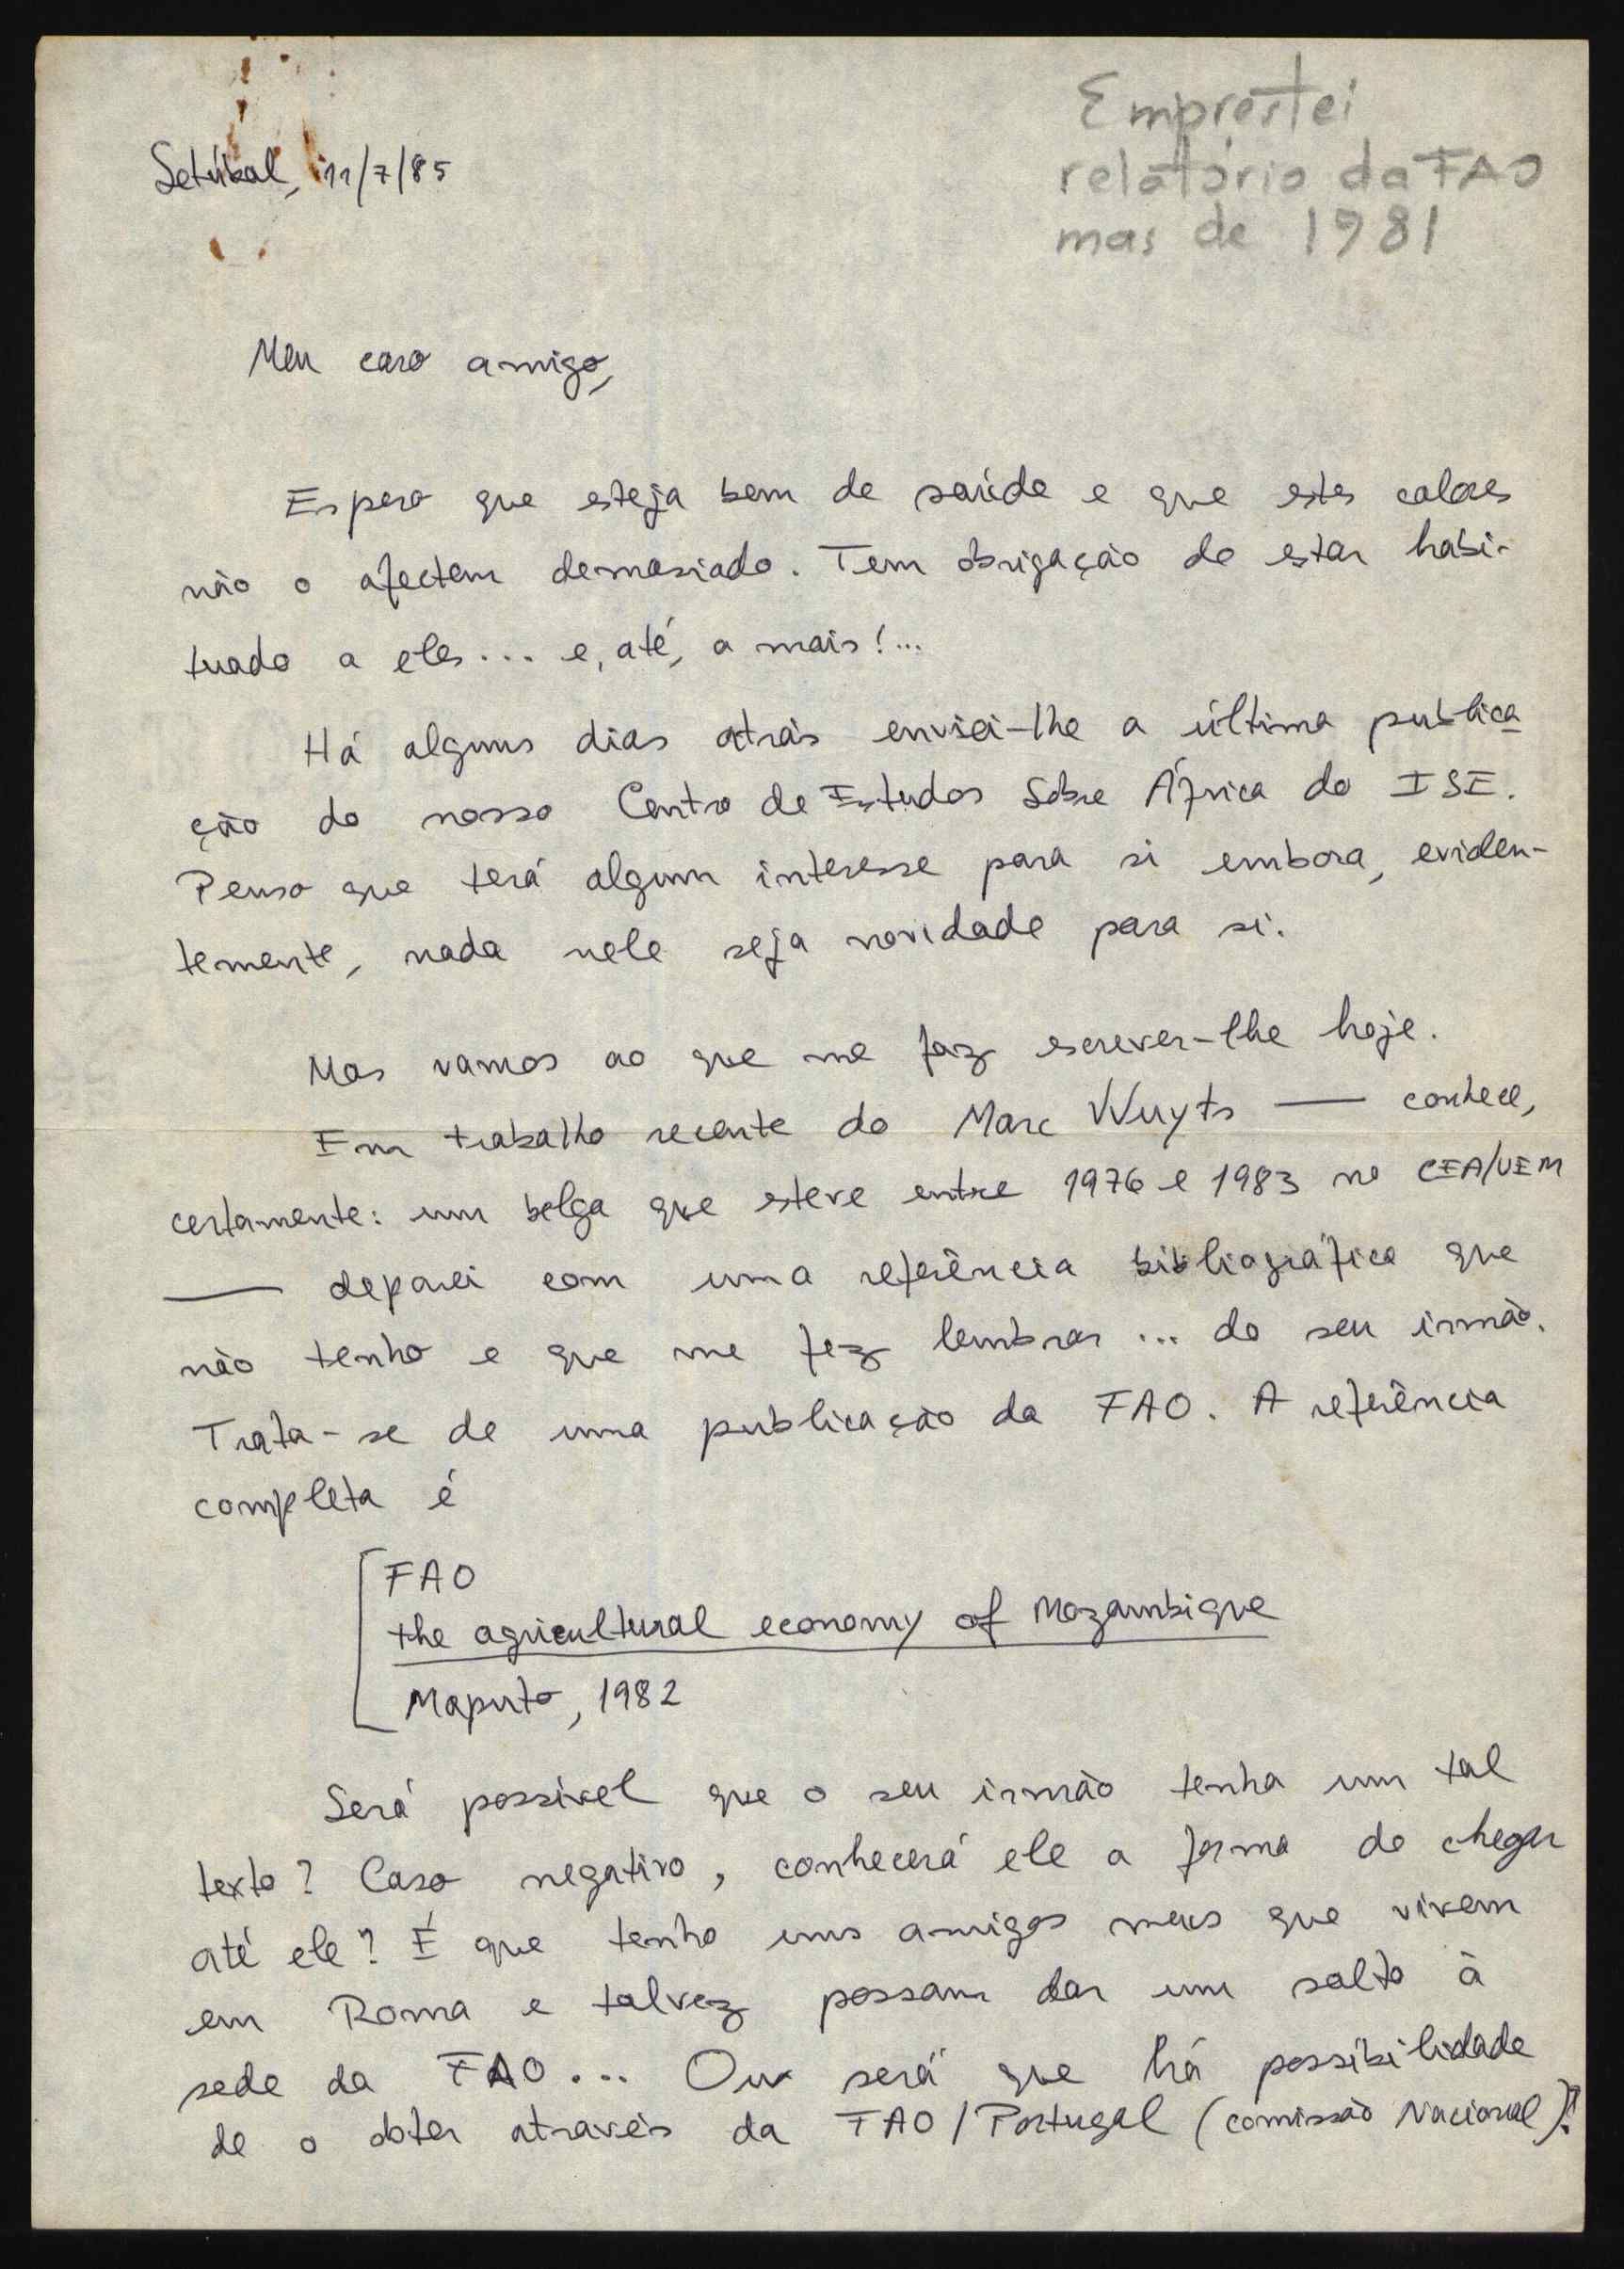 Emprestei
relatório da FAO
mas de 1981
Setúbal, 11/7/85
Meu caro amigo,
Espero que esteja bem de saúde e que estes calores
não o afectem demasiado. Tem obrigação de estar habi-
tuado a eles... e, até, a mais!...
Há alguns dias atrás enviei-lhe a última publica
ção do nosso Centro de Estudos Sobre África do ISE.
Penso que terá algum interesse para si embora, eviden-
temente, nada nele seja novidade para si.
Mas vamos ao que me faz escrever-lhe hoje.
Em trabalho recente do Marc Wuyts — conhece,
certamente: um belga que esteve entre 1976 e 1983 no CEA/UEM
— deparei com uma referência bibliográfica que
não tenho e que me fez lembrar ... do seu irmão.
Trata-se de uma publicação da FAO. A referência
completa é
FAO
the agricultural economy of Mozambique
Maputo, 1982
Será possível que o seu irmão tenha um tal
texto? Caso negativo, conhecerá ele a forma de chegar
até ele? É que tenho uns amigos meus que vivem
em Roma e talvez possam dar um salto à
sede da FAO... Ou será que há possibilidade
de o obter através da FAO/Portugal (comissão Nacional)?!